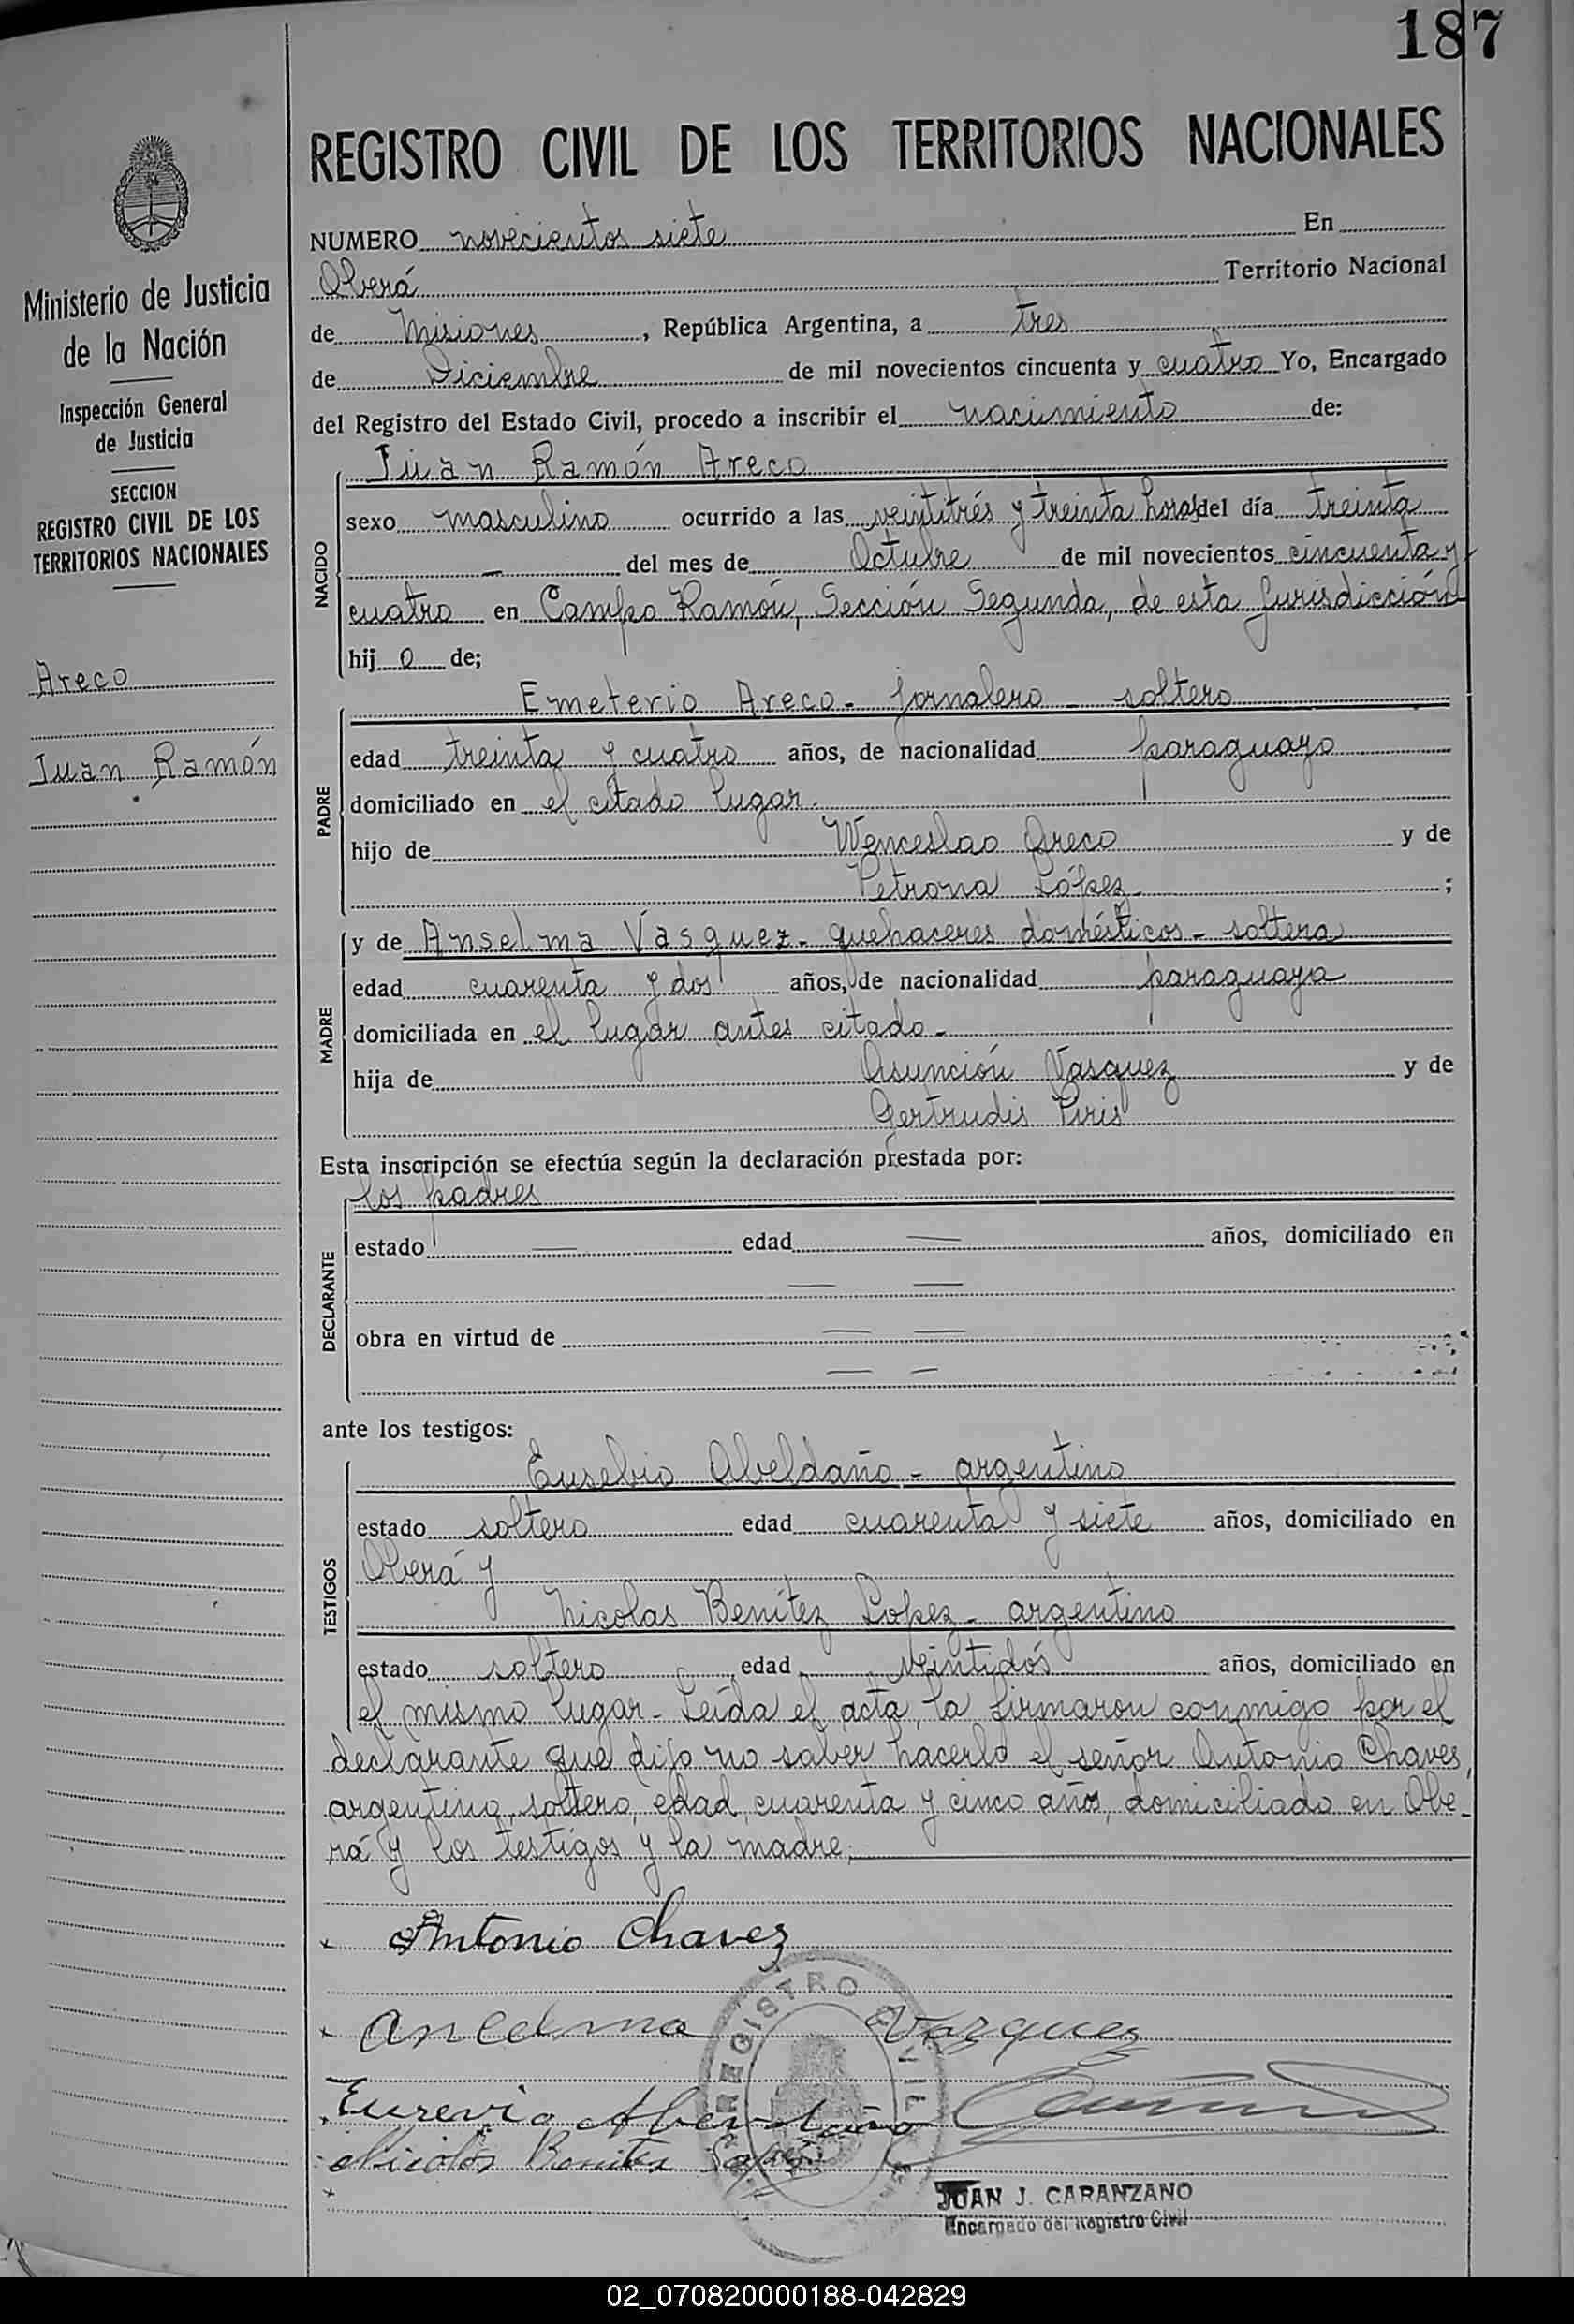 187
REGISTRO CIVIL DE LOS TERRITORIOS NACIONALES
Ministerio de Justicia
de la Nación
Inspección General
de Justicia
SECCION
REGISTRO CIVIL DE LOS
TERRITORIOS NACIONALES
Areco
Juan Ramón
NUMERO novecientos siete En
Oberá Territorio Nacional
de Misiones, República Argentina, a tres
de Diciembre de mil novecientos cincuenta y cuatro Yo, Encargado
del Registro del Estado Civil, procedo a inscribir el nacimiento de:
NACIDO
Juan Ramón Areco
sexo masculino ocurrido a las veintitrés y treinta horas del día treinta
— del mes de Octubre de mil novecientos cincuenta y
cuatro en Campo Ramón, Sección Segunda, de esta Jurisdicción
hijo de;
PADRE
Emeterio Areco - jornalero - soltero
edad treinta y cuatro años, de nacionalidad paraguayo
domiciliado en el citado lugar.
hijo de Wenceslao Areco y de
Petrona López ;
MADRE
y de Anselma Vasquez - quehaceres domésticos - soltera
edad cuarenta y dos años, de nacionalidad paraguaya
domiciliada en el lugar antes citado -
hija de Asunción Vasquez y de
Gertrudis Piris
Esta inscripción se efectúa según la declaración prestada por:
DECLARANTE
los padres
estado — edad — años, domiciliado en
— —
obra en virtud de — —
— —
ante los testigos:
TESTIGOS
Eusebio Abeldaño - argentino
estado soltero edad cuarenta y siete años, domiciliado en
Oberá y
Nicolas Benítez Lopez - argentino
estado soltero edad veintidós años, domiciliado en
el mismo lugar - Leída el acta, la firmaron conmigo por el
declarante que dijo no saber hacerlo el señor Antonio Chaves,
argentino, soltero, edad, cuarenta y cinco años, domiciliado en Obe-
rá y los testigos y la madre.
Antonio Chavez
Ancelma Vazquez
Eusevio Abeldaño
Nicolás Benitez Lopez
REGISTRO CIVIL
JUAN J. CARANZANO
Encargado del Registro Civil
02_070820000188-042829